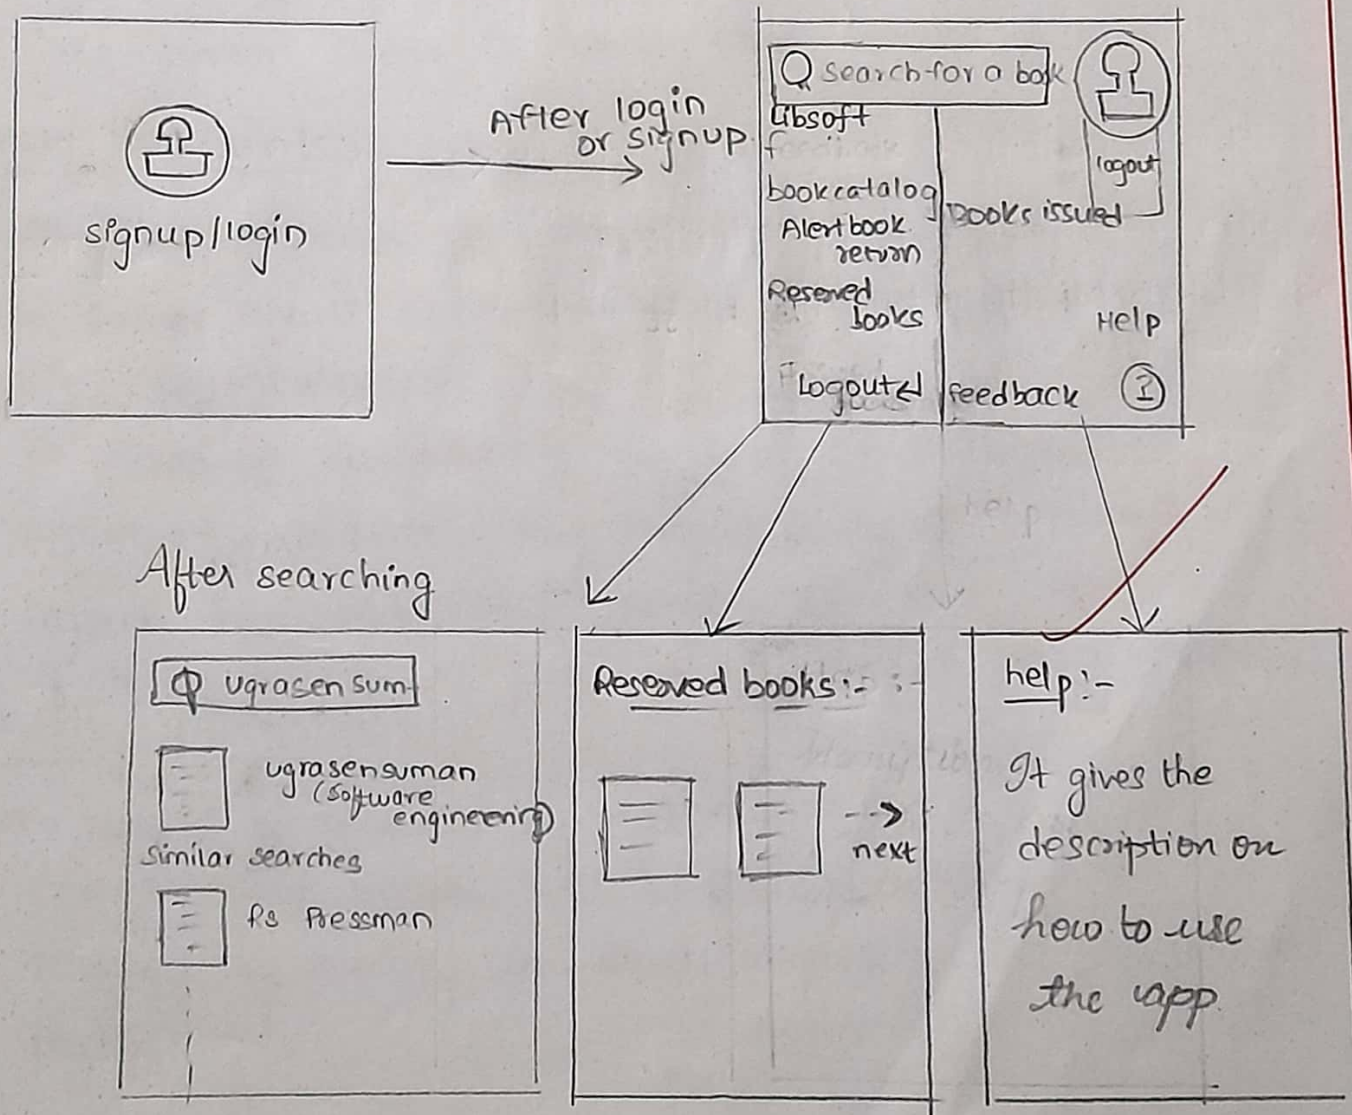 signup/login
After login
or signup
search for a book
Libsoft
logout
bookcatalog
Books issued
Alert book
return
Reserved
books
Help
Logout
feedback
?
help
After searching
ugrasen sum
ugrasensuman
(software
engineering)
similar searches
Rs Pressman
Reserved books:-
next
help:-
It gives the
description on
how to use
the app.